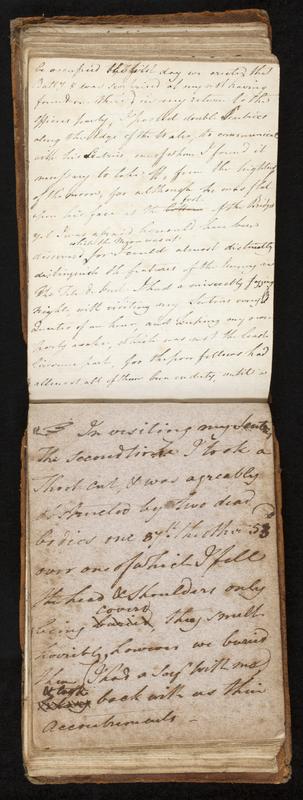 be occupied the next day we erected that
Batty & was surprised at my not having
found on my return to the
officers party, I posted double Sentries
along the edge of the Water, to communicate
with his Sentries, one of whom I found it
necessary to take off, from the brightness
of the moon, for although he was flat
upon his face at the foot of the Bridge
yet I was afraid he would have been
discovered, for I could almost distinctly
distinguish the features of the enemy on
the Tete de Pont. I had a miserably
Night, with visiting my Sentries every
Quarter of an hour, and keeping my own
party awake, which was not the least
part, for the poor fellows had
almost all of them been on duty, until a
In visiting my Sentries
the second time I took a
short cut, & was agreeably
obstructed by two dead
bodies one 87th the other 53d
over one of which I fell
the head & shoulders only
being covered, they smelt
horribly, however we buried
them I had a Serjt with me
& took back with us their
accoutrements —